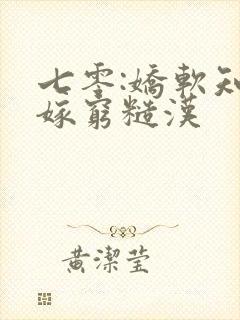 七零:嬌軟知
嫁窮糙漢
黃潔莹